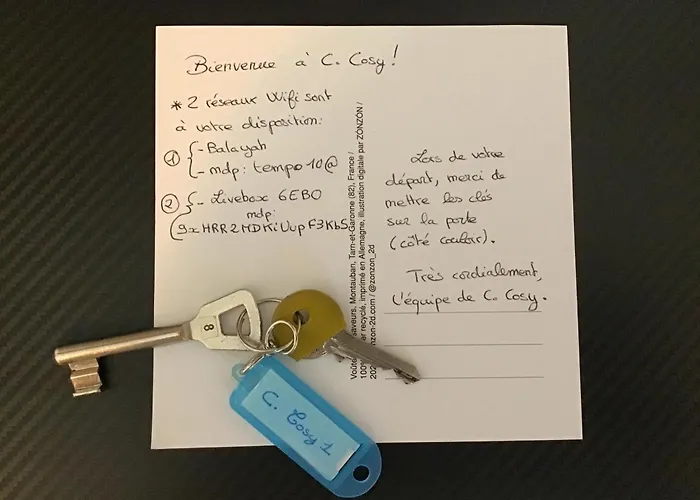 Bienvenue à C. Cosy !
* 2 réseaux Wifi sont
à votre disposition:
① - Balayah
- mdp: tempo10@
② - Livebox 6EBO
mdp:
Lors de votre
départ, merci de
mettre les clés
sur la porte
(côté couloir).
Très cordialement,
L'équipe de C. Cosy.
saveurs, Montauban, Tarn-et-Garonne (82), France /
recyclé, imprimé en Allemagne, illustration digitale par ZONZON /
zonzon-2d.com / @zonzon_2d
8
C. Cosy 1